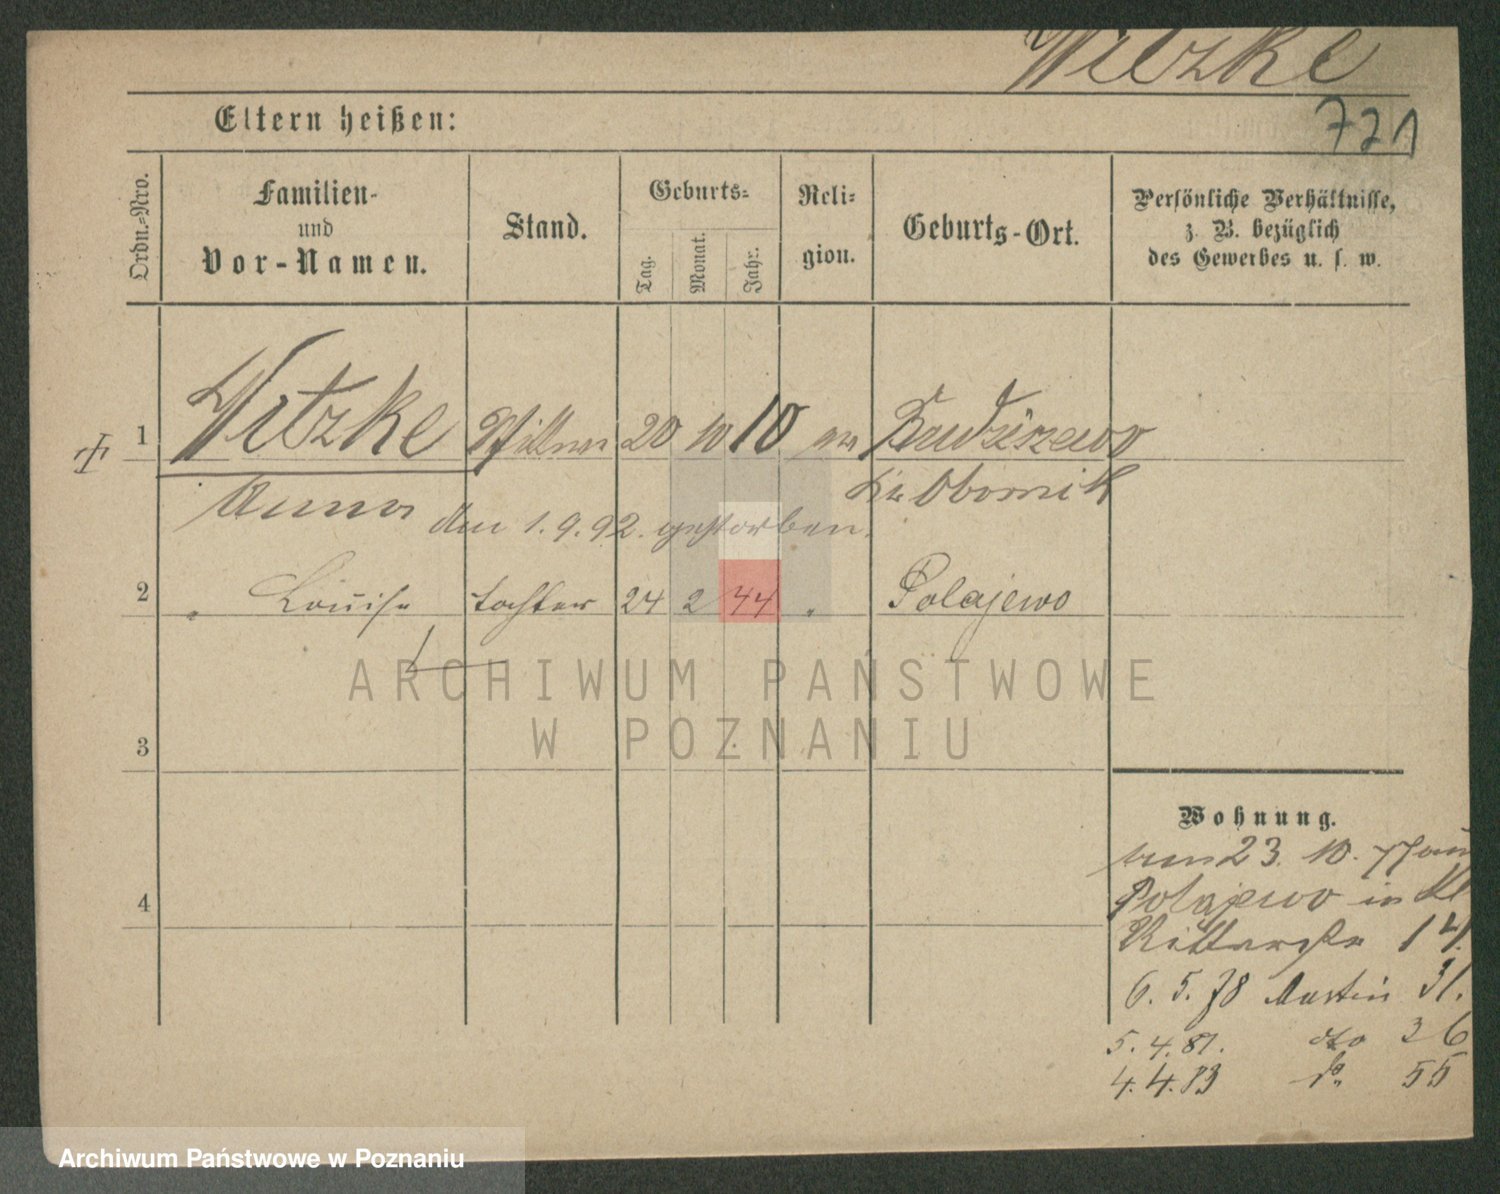 Witzke
721
Eltern heißen:
Ordn.-Nro.
Familien-
und
Vor-Namen.
Stand.
Geburts-
Tag.
Monat.
Jahr.
Reli-
gion.
Geburts-Ort.
Persönliche Verhältnisse,
z. B. bezüglich
des Gewerbes u. s. w.
1 Witzke 20 10 10 Budziszewo
Anna Kr. Obornik
den 1.9.92. gestorben.
2 " Louise Tochter 24 2 44 " Polajewo
ARCHIWUM PAŃSTWOWE
W POZNANIU
3
4
Wohnung.
23. 10. 77
Polajewo in Kl
Ritterstr 14.
6. 5. 78 Martin 31.
5. 4. 81. dto 36
4. 4. 83 do. 55
Archiwum Państwowe w Poznaniu